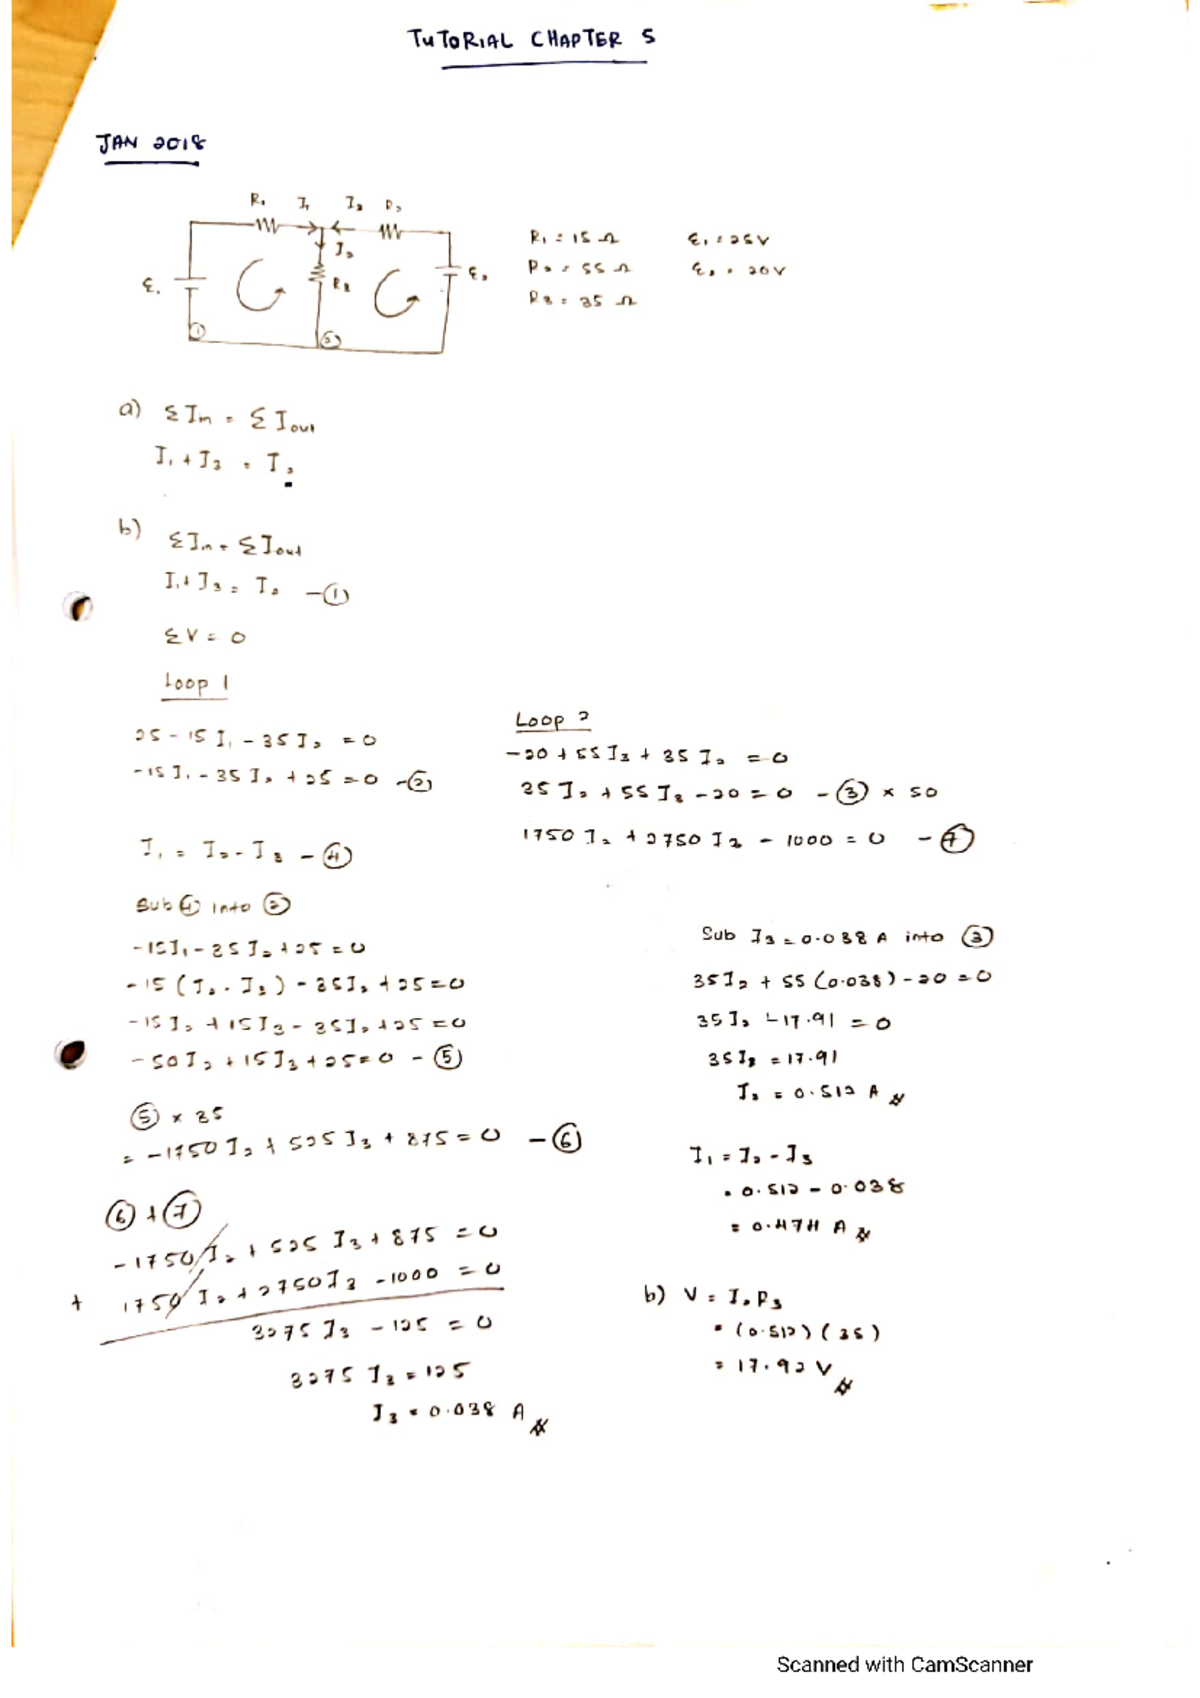 TUTORIAL CHAPTER 5
JAN 2018
R1 I1 I3
I2
ε1
①
②
R1 = 15 Ω ε1 = 25V
R2 = 55 Ω ε2 = 20V
R3 = 35 Ω
a) ΣIin = ΣIout
I1 + I3 = I2
b) ΣIin = ΣIout
I1 + I3 = I2 - ①
ΣV = 0
Loop 1
25 - 15 I1 - 35 I2 = 0
-15 I1 - 35 I2 + 25 = 0 - ②
I1 = I2 - I3 - ④
Sub ④ into ②
-15I1 - 35 I2 + 25 = 0
-15 (I2 - I3) - 35I2 + 25 = 0
-15 I2 + 15 I3 - 35I2 + 25 = 0
-50 I2 + 15 I3 + 25 = 0 - ⑤
⑤ x 35
= -1750 I2 + 525 I3 + 875 = 0 - ⑥
⑥ + ⑦
-1750 I2 + 525 I3 + 875 = 0
+ 1750 I2 + 2750 I3 - 1000 = 0
3275 I3 - 125 = 0
3275 I3 = 125
I3 = 0.038 A
Loop 2
-20 + 55 I3 + 35 I2 = 0
35 I2 + 55 I3 - 20 = 0 - ③ x 50
1750 I2 + 2750 I3 - 1000 = 0 - ⑦
Sub I3 = 0.038 A into ③
35I2 + 55 (0.038) - 20 = 0
35 I2 - 17.91 = 0
35 I2 = 17.91
I2 = 0.512 A
I1 = I2 - I3
= 0.512 - 0.038
= 0.474 A
b) V = I2R3
= (0.512) (35)
= 17.92 V
Scanned with CamScanner